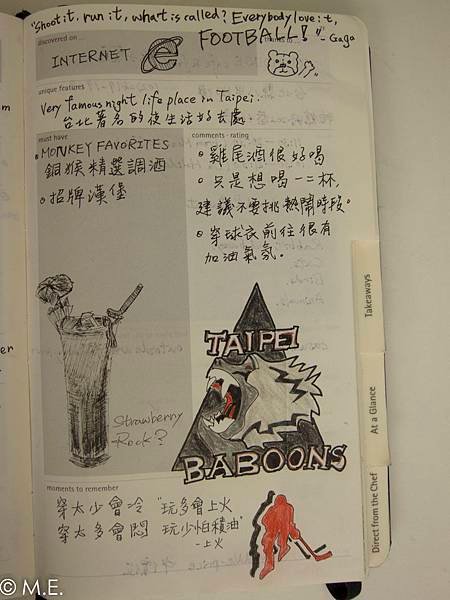 "Shoot it, run it, what is called? Everybody love it,
FOOTBALL!" - Gaga
discovered on...
thanks to...
INTERNET
unique features
Very famous night life place in Taipei.
台北著名的夜生活好去處.
must have
MONKEY FAVORITES
銅猴精選調酒
招牌漢堡
comments · rating
雞尾酒很好喝
只是想喝一二杯,
建議不要挑熱鬧時段。
穿球衣前往很有
加油氣氛.
Strawberry
Rock?
TAIPEI
BABOONS
moments to remember
穿太少會冷 "玩多會上火
穿太多會悶 玩少怕積油"
-上火
Takeaways
At a Glance
Direct from the Chef
© M.E.